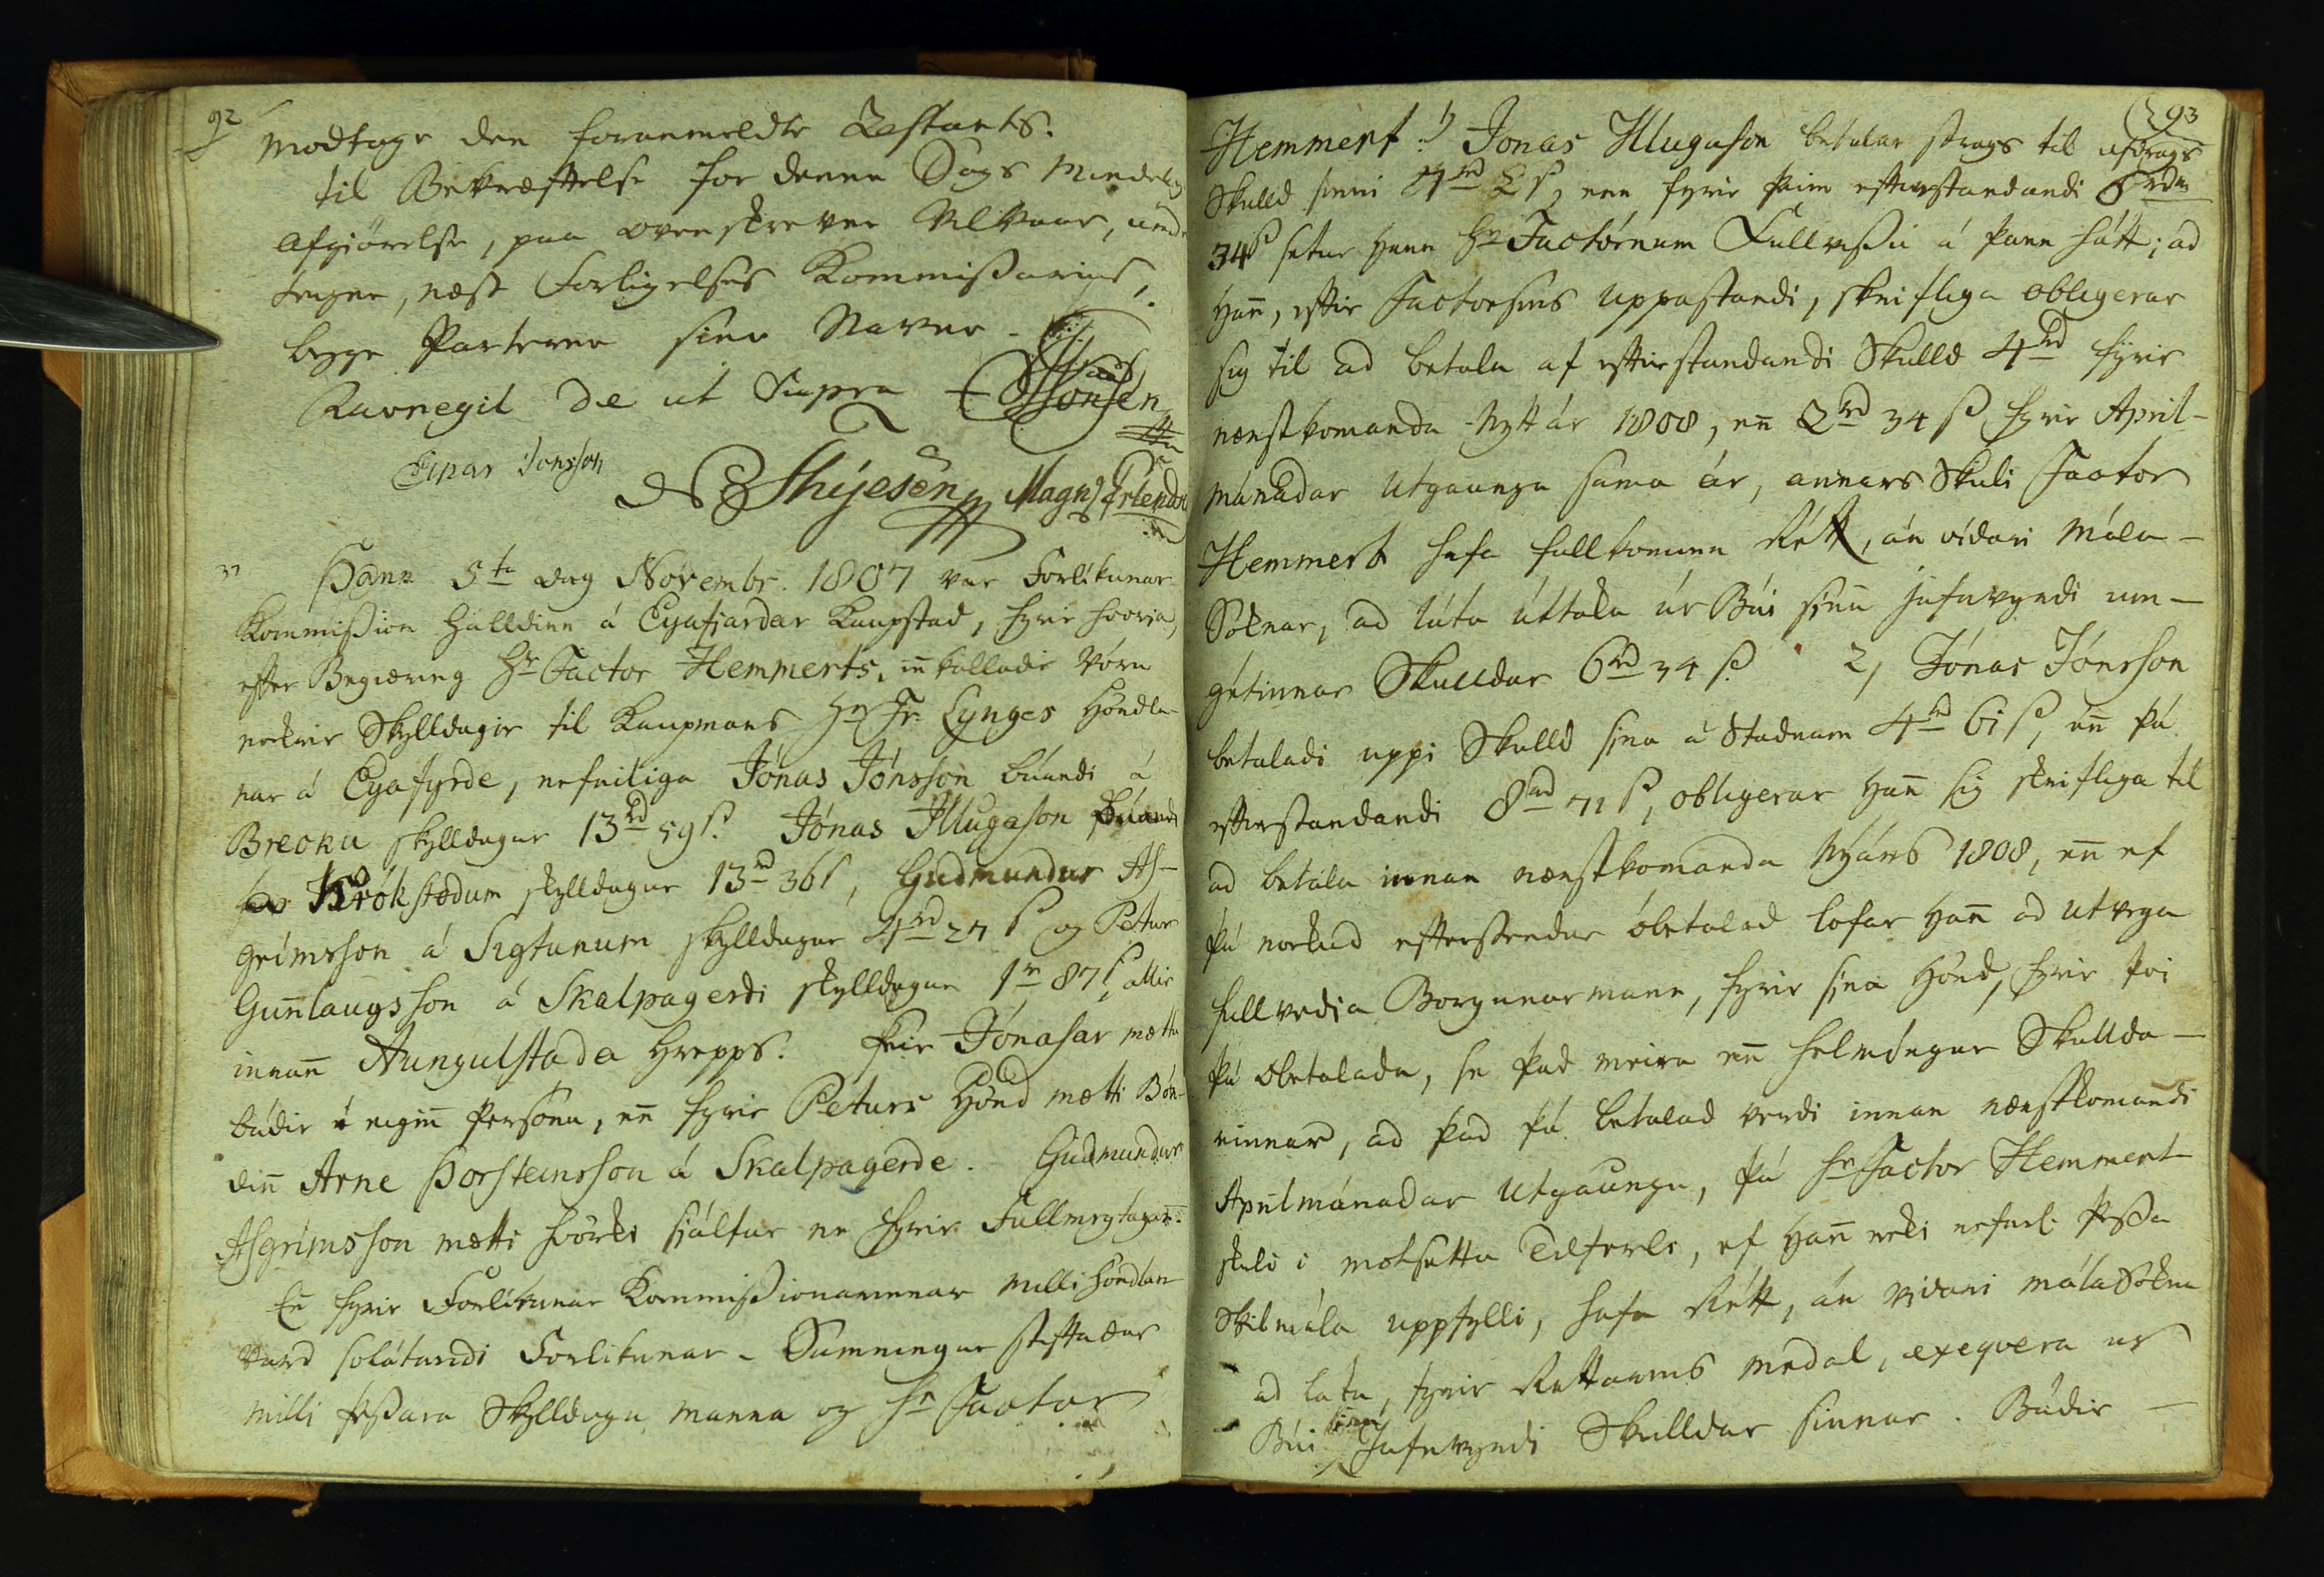 92
modtage den foranmeldte Restants.
til Bekræftelse for denne Sags Mindelig
Afgiørelse, paa ovenskrevne Vilkaar, under
tegne, næst Forligelses Kommissarius,
begge Parterne sine Navne.
Ravnegil Die ut Supra
Jonsen
Einar Jónsson
Thyesen Magnus Erlendss
37 Þann 5ta dag Novembr. 1807 var Forlíkunar
Kommission halldinn á Eyafjardar Kaupstad, fyrir hvoria,
efter Begiæring Hr Factor Hemmerts, innkalladir vóru
nockrir Skylldugir til Kaupmans Hr Fr. Lynges Hóndlu-
nar á Eyafyrde, nefniliga Jónas Jónsson búandi á
Brecku skylldugur 13rd 59s. Jónas Illugason búandi
Krókstodum skylldugur 13rd 36s, Gudmundur As-
grímsson á Sigtunum skylldugur 4rd 27s og Petur
Gunnlaugsson á Skalpagerdi skylldugur 1rd 87s, allir
innann Aungulstada Hrepps. Þeir Jónasar mættu
bádir í eigin Persónu, enn fyrir Péturs Hónd mætti Bón-
dinn Arne Þorsteinsson á Skalpagerde. Gudmundur
Asgrímsson mætti hvórki siálfur ne fyrir Fullmegtugan.
En fyrir Forlíkunar Kommissionarinnar Millihóndlan
vard solátandi Forlíkunar-Samningur stiftadur
milli þessara Skylldugu manna og Hr Factor
93
Hemmert: 1) Jonas Illugason betalar strags til afdrags
Skulld sinni 7rd 2s, enn fyrir þeim eftirstandandi 6rd
34s setur hann Hr Factórnum Fullvissu á þann hátt; ad
hann, eftir Factorsins uppástandi, skriflega obligerar
sig til ad betala af eftirstandandi Skulld 4rd fyrir
næstkomanda Nyttár 1808, enn 2rd 34s fyrir April-
mánadar Utgaungu sama ár, annars Skuli Factor
Hemmert hafa fullkominn Rétt, án vídari Mála-
Sóknar, ad láta úttaka úr Búi sinu jafnvyrdi um-
gétinnar Skulldar 6rd 34s. 2) Jónas Jónsson
betaladi uppi Skulld sina á Stadnum 4rd 61s, enn þá
eftirstandandi 8rd 71s, obligerar hann sig skriflega til
ad betala innan næstkomanda Nýárs 1808, enn ef
þá nockud efterstendur óbetalad lofar hann ad utvega
fullvedia Borgunarmann, fyrir sina Hónd, fyrir því
þá obetalada, se þad meira enn helmíngur Skullda-
rinnar, ad þad þá betalad verdi innan næstkomandi
Aprilmánadar Utgaungu, þá Hr Factor Hemmert
skuli i mótsettu Tilfelle, ef hann ecki nefnd. þessa
Skilmála uppfylli, hafa Rétt, án vidari málasókna
ad láta, fyrir Rettarins medal, exeqvera úr
Búi sinu Jafnvyrdi Skulldar sinnar. Bádir